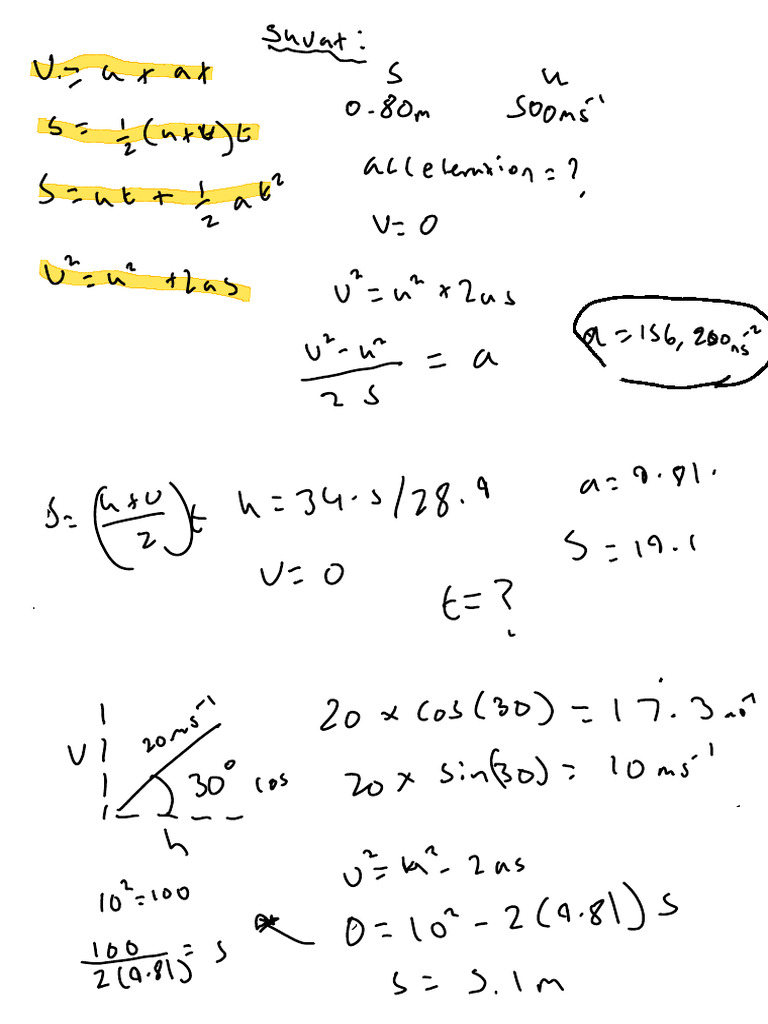 Suvat:
v = u + at
s = 1/2 (u+v)t
s = ut + 1/2 at²
v² = u² + 2as
s u
0.80m 500ms⁻¹
acceleration = ?
v = 0
v² = u² + 2as
(v² - u²)/(2s) = a
a = 156,200ms⁻²
s = ((u+v)/2)t
u = 34.5/28.9
v = 0
a = 9.81.
s = 19.1
t = ?
v
20ms⁻¹
30° cos
h
20 × cos(30) = 17.3ms⁻¹
20 × sin(30) = 10ms⁻¹
10² = 100
100/(2(9.81)) = s
v² = u² - 2as
0 = 10² - 2(9.81)s
s = 5.1m